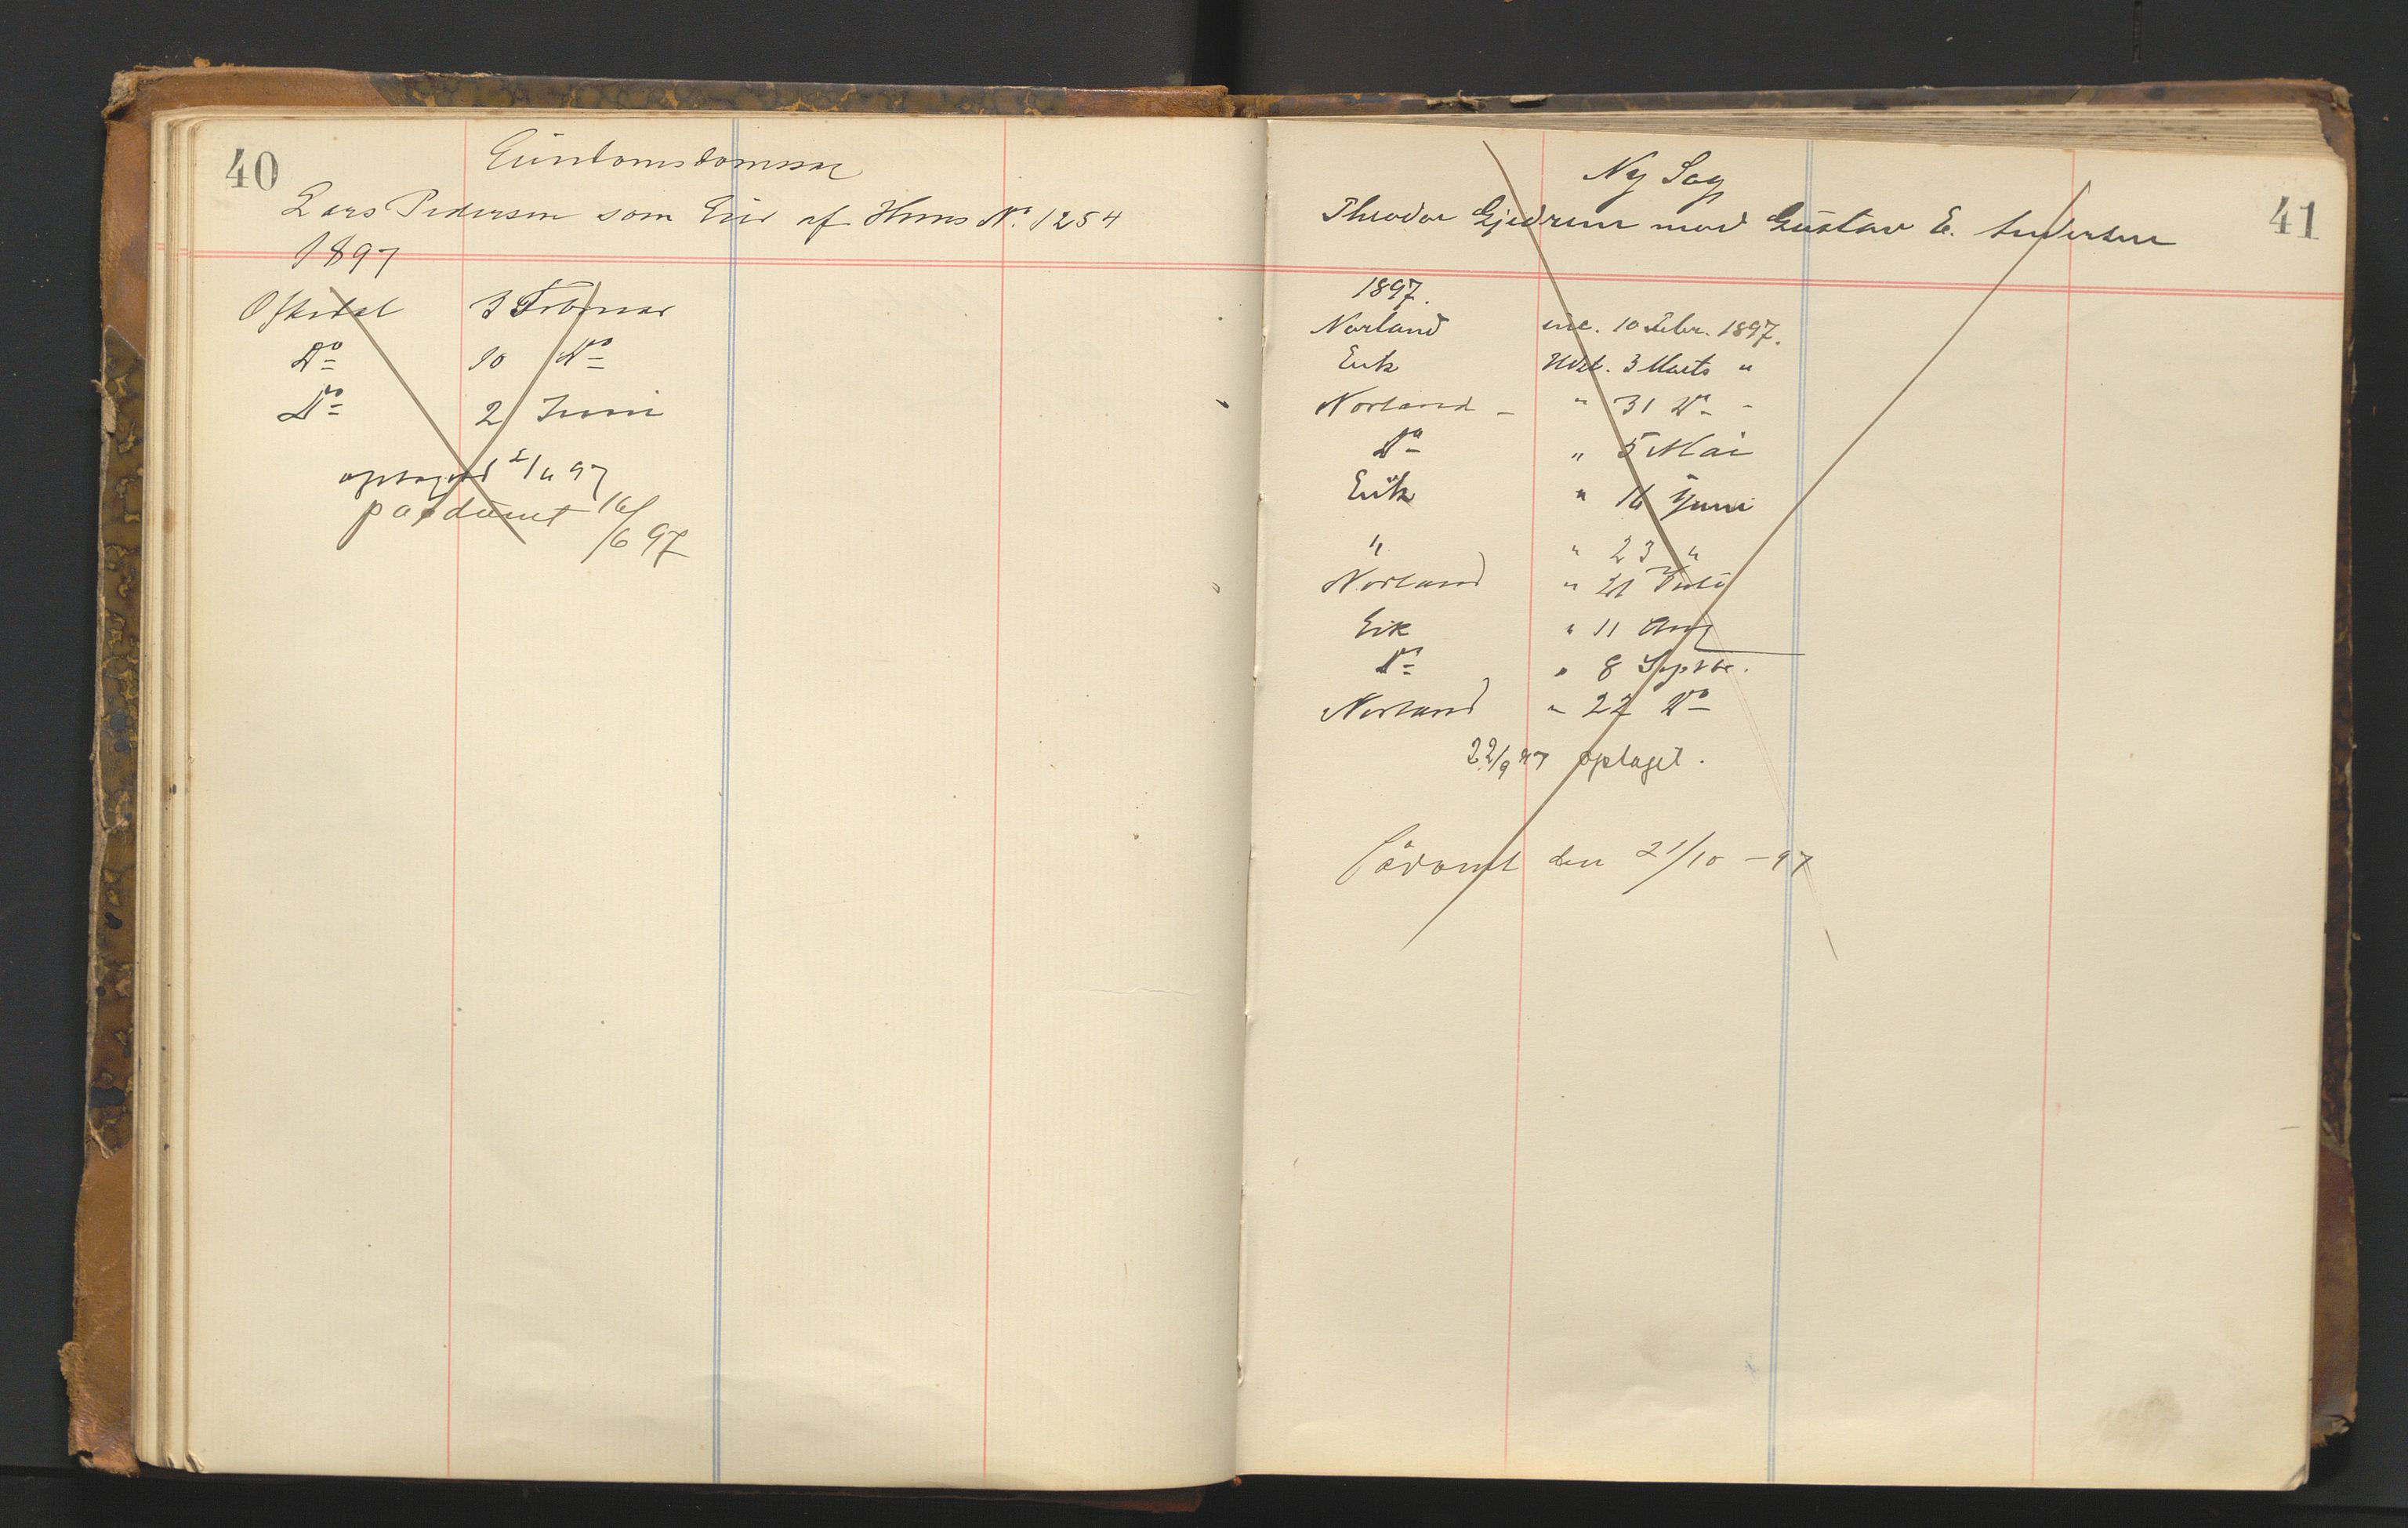 40
Eiendomsdomssag
Lars Pedersen som Eier af Huus No. 1254
1897
Oftedal 3 Februar
Do 10 Do
Do 2 Juni
optaget 2/6 97
paadømt 16/6 97
41
Ny Sag
Theodor Gjedrem mod Gustav E. Andersen
1897.
Norland inc. 10 Febr. 1897.
Eik Uds. 3 Marts "
Norland - " 31 Do -
Do " 5 Mai
Eik " 16 Juni
" " 23 "
Norland " 21 Juli
Eik " 11 Aug
Do " 8 Septbr.
Norland " 22 Do
22/9 97 optaget.
Pådømt den 21/10 - 97